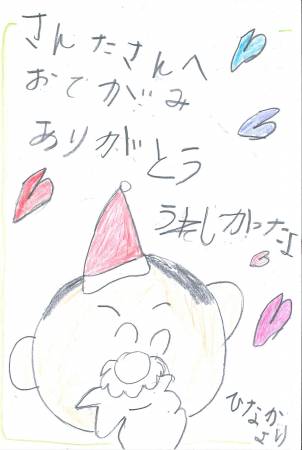 さんたさんへ
おてがみ
ありがとう
うれしかったよ
ひなか
より